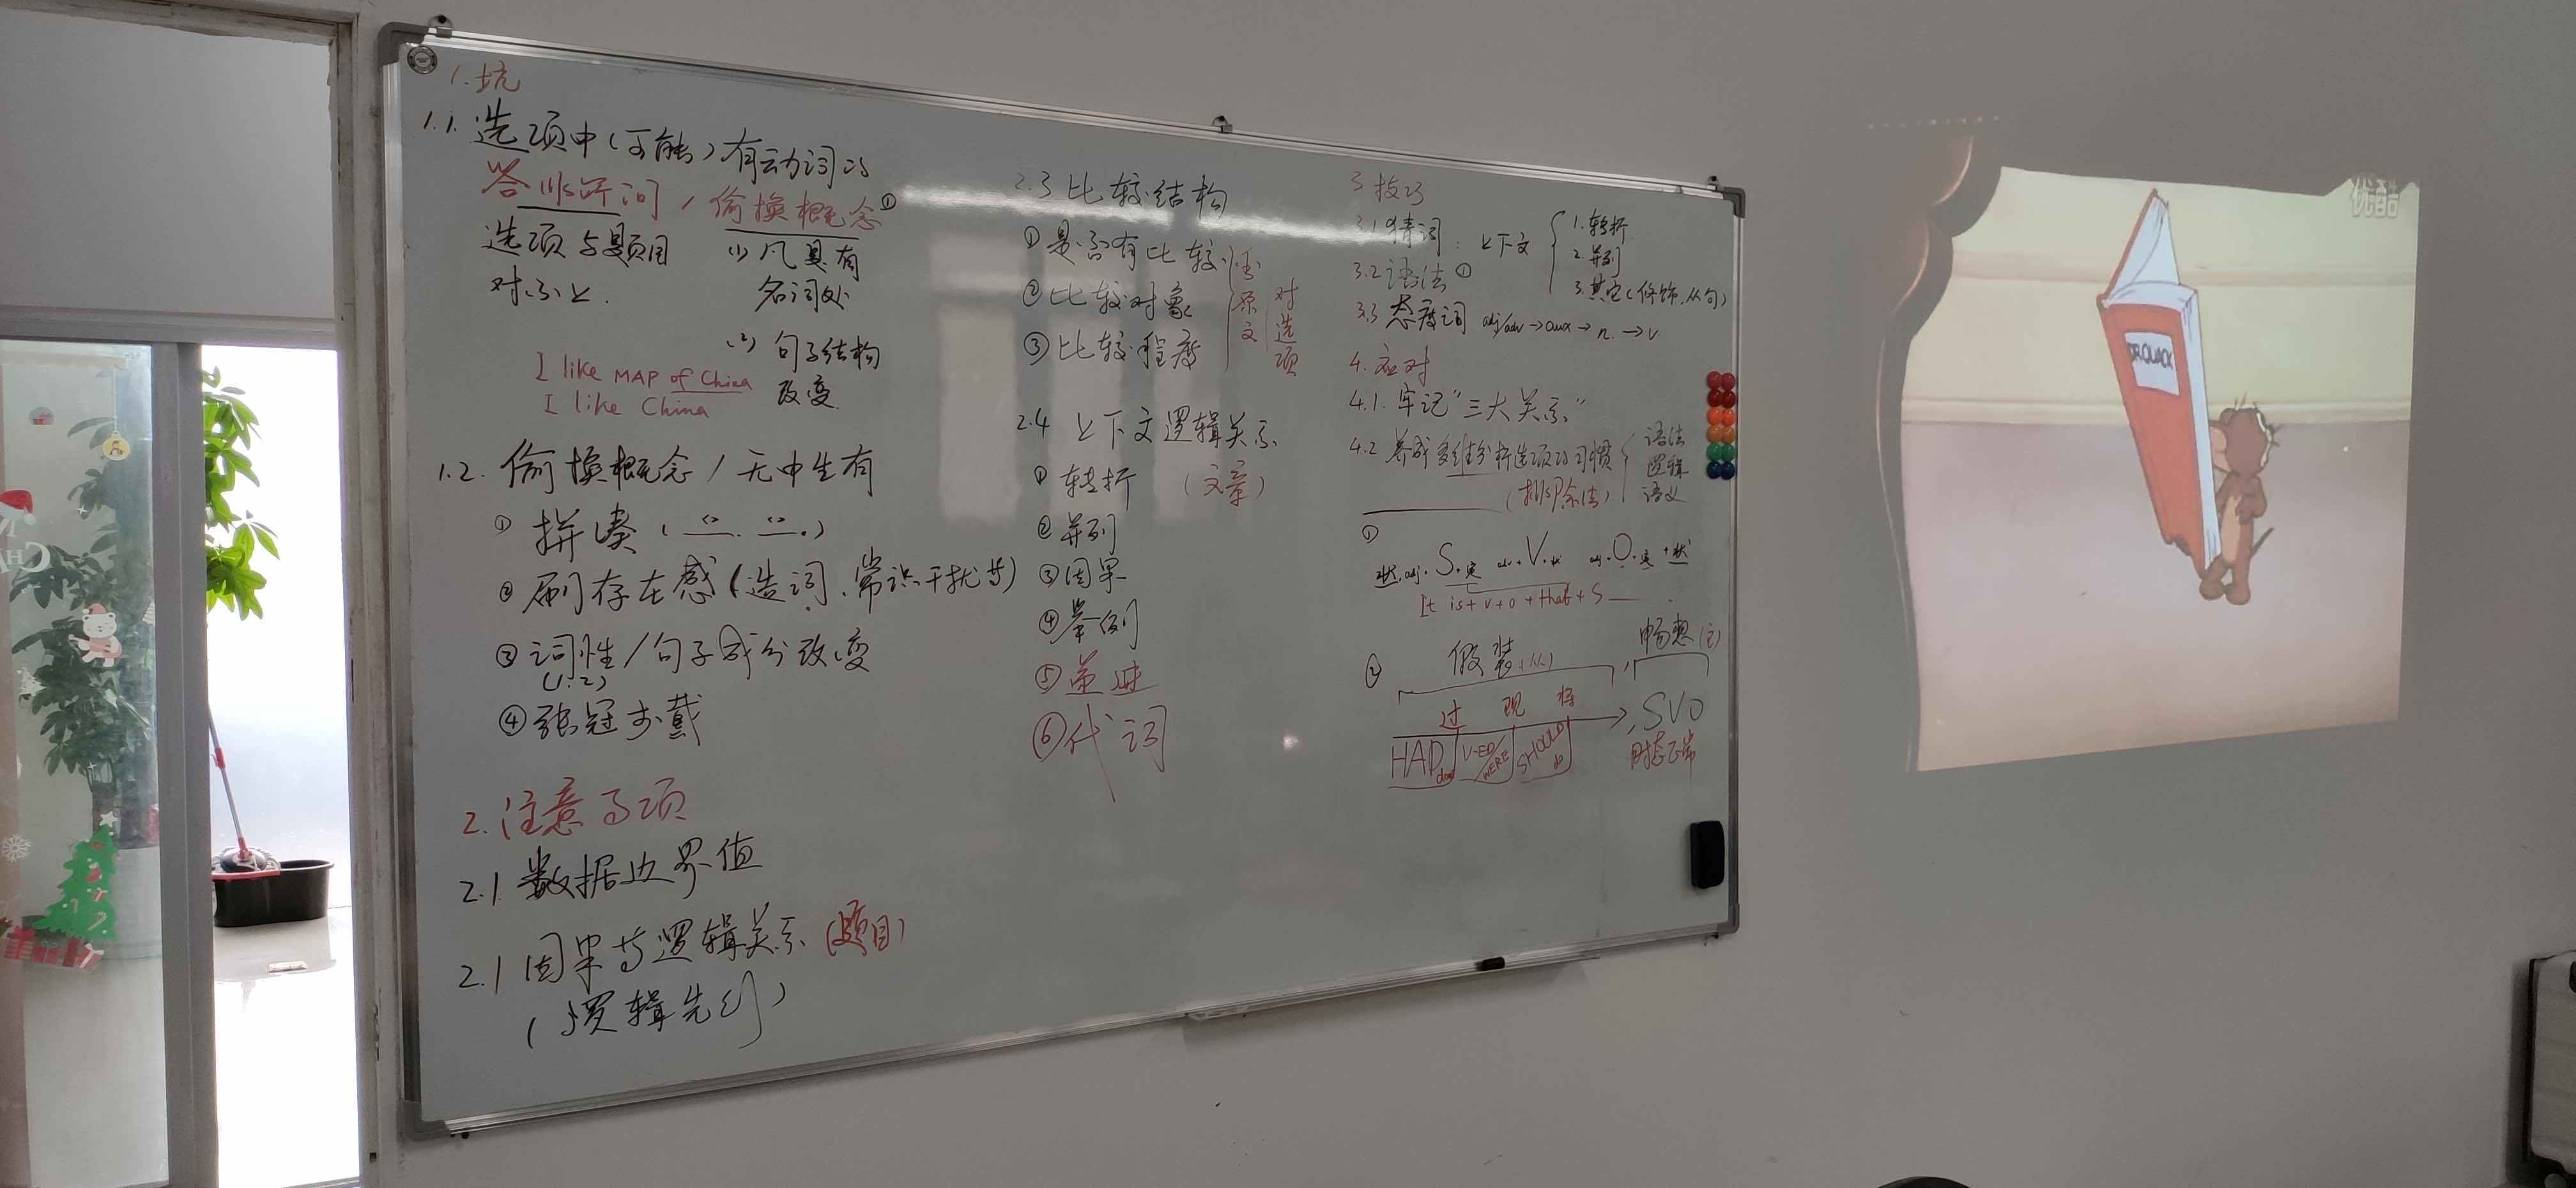 1.坑
1.1.选项中(可能)有动词的
答非所问/偷换概念①
选项与题目
对不上.
(1)凡具有
名词处
(2)句子结构
改变.
I like MAP of China
I like China
1.2.偷换概念/无中生有
①拼凑
②刷存在感(造词、常识干扰等)
③词性/句子成分改变
(1.2)
④张冠李戴
2.注意事项
2.1数据边界值
2.1因果等逻辑关系(题目)
(逻辑先行)
2.3比较结构
①是否有比较
②比较对象
③比较程度
查原文
对选项
2.4上下文逻辑关系
①转折(文章)
②并列
③因果
④举例
⑤递进
⑥代词
3技巧
3.1猜词:上下文
1.转折
2.并列
3.其它(修饰.从句)
3.2语法①
3.3态度词 adj/adv→aux→n.→v
4.应对
4.1.牢记"三大关系"
4.2养成多维分析选项的习惯
(排除法)
语法
逻辑
语义
①
状,adj.S.定 adv.V.状 adj.O.定+状
It is+v+o+that+S
②
假装
畅想(主)
过 现 将
HAD done V-ED/WERE SHOULD do
,SVO
时态正常
DR.QUACK
优酷